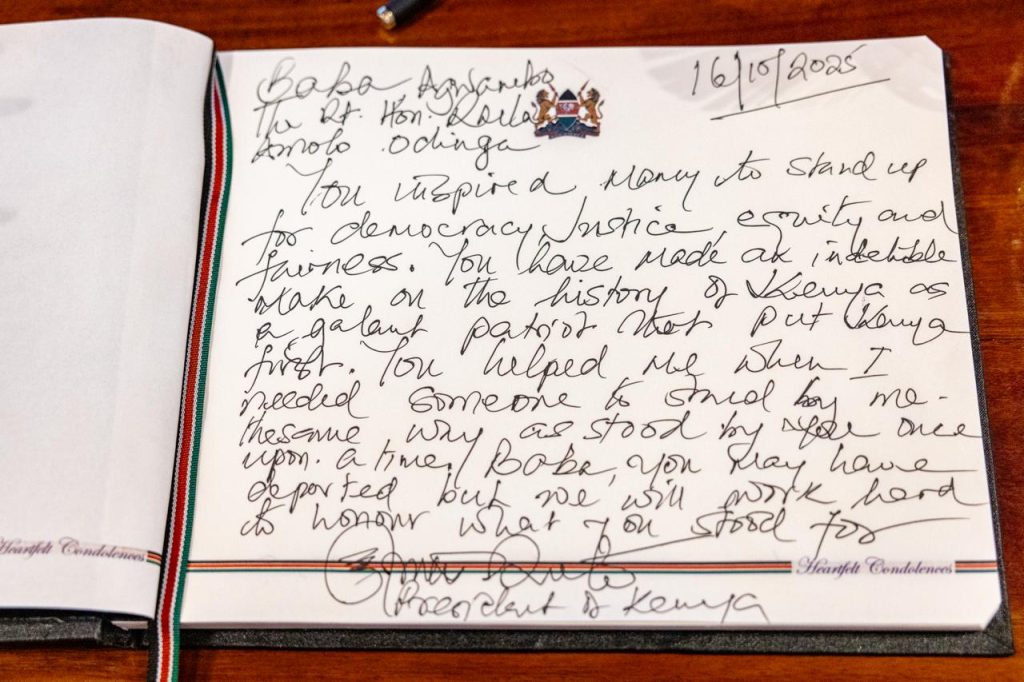 16/10/2025
Baba Agwambo
The Rt. Hon. Raila
Amolo Odinga
You inspired many to stand up
for democracy Justice, equity and
fairness. You have made an indelible
make on the history of Kenya as
a galant patriot that put Kenya
first. You helped me when I
needed someone to stand by me.
thesame way as stood by you once
upon a time. Baba, you may have
departed but we will work hard
to honour what you stood for
President of Kenya
Heartfelt Condolences
Heartfelt Condolences